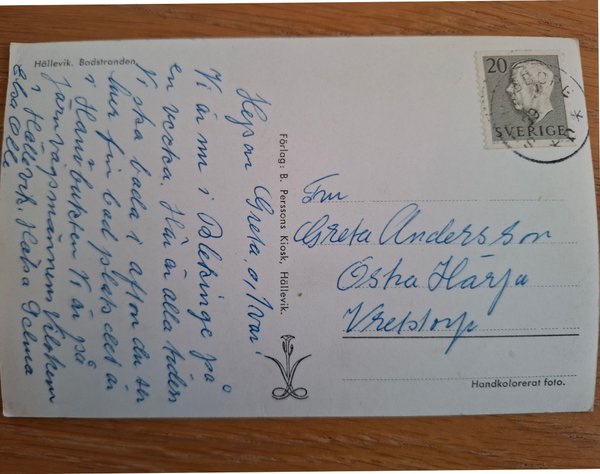 Hällevik. Badstranden.
Hejsan Greta, o, Ivar!
Vi är nu i Blekinge på
en vecka. Här är alla tiders
Vi ska bada i afton du ser
hur fin bad plats det är
i Hanöbukten Vi är på
järnvägsmännens Vilohem
i Hällevik. Hälsa
Elsa Olle
Förlag: B. Perssons Kiosk, Hällevik.
20
SVERIGE
Fru
Greta Andersson
Östra Härja
Vretstorp
Handkolorerat foto.